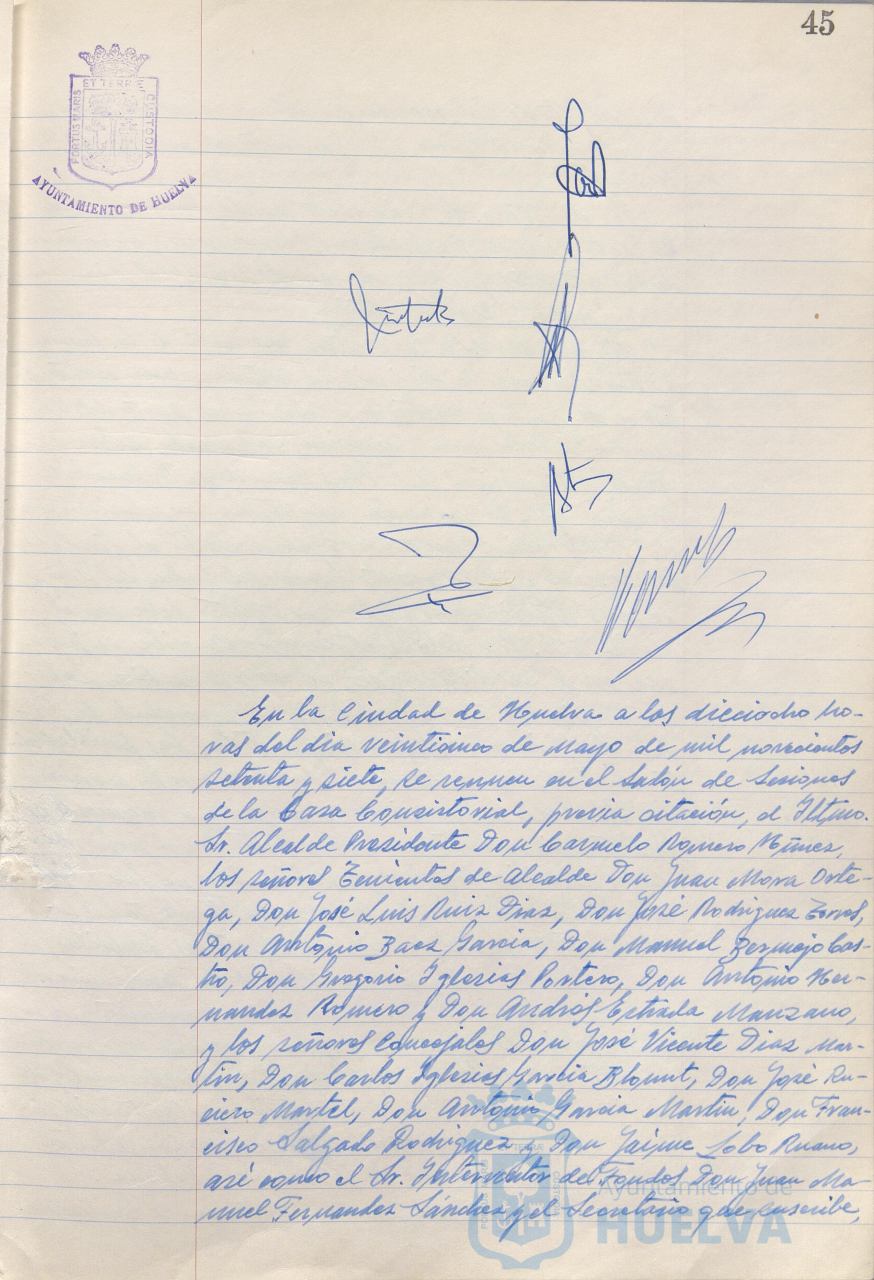 45
ET TERRE
PORTUS MARIS
CUSTODIA
AYUNTAMIENTO DE HUELVA
En la Ciudad de Huelva a los dieciocho ho-
ras del dia veinticinco de Mayo de mil novecientos
setenta y siete, se reunen en el Salón de Sesiones
de la Casa Consistorial, previa citación, el Iltmo.
Sr. Alcalde Presidente Don Carmelo Romero Núñez,
los señores Tenientes de Alcalde Don Juan Mora Orte-
ga, Don José Luis Ruiz Diaz, Don José Rodriguez Torres,
Don Antonio Baez Garcia, Don Manuel Bermejo Cas-
tro, Don Gregorio Iglesias Portero, Don Antonio Her-
nandez Romero y Don Andrés Estrada Manzano,
y los señores Concejales Don José Vicente Diaz Mar-
tín, Don Carlos Iglesias Garcia Blount, Don José Ru-
ciero Martel, Don Antonio Garcia Martin, Don Fran-
cisco Salgado Rodriguez y Don Jaime Lobo Ruano,
asi como el Sr. Interventor de Fondos Don Juan Ma-
nuel Fernandez Sánchez y el Secretario que suscribe,
Ayuntamiento de
HUELVA